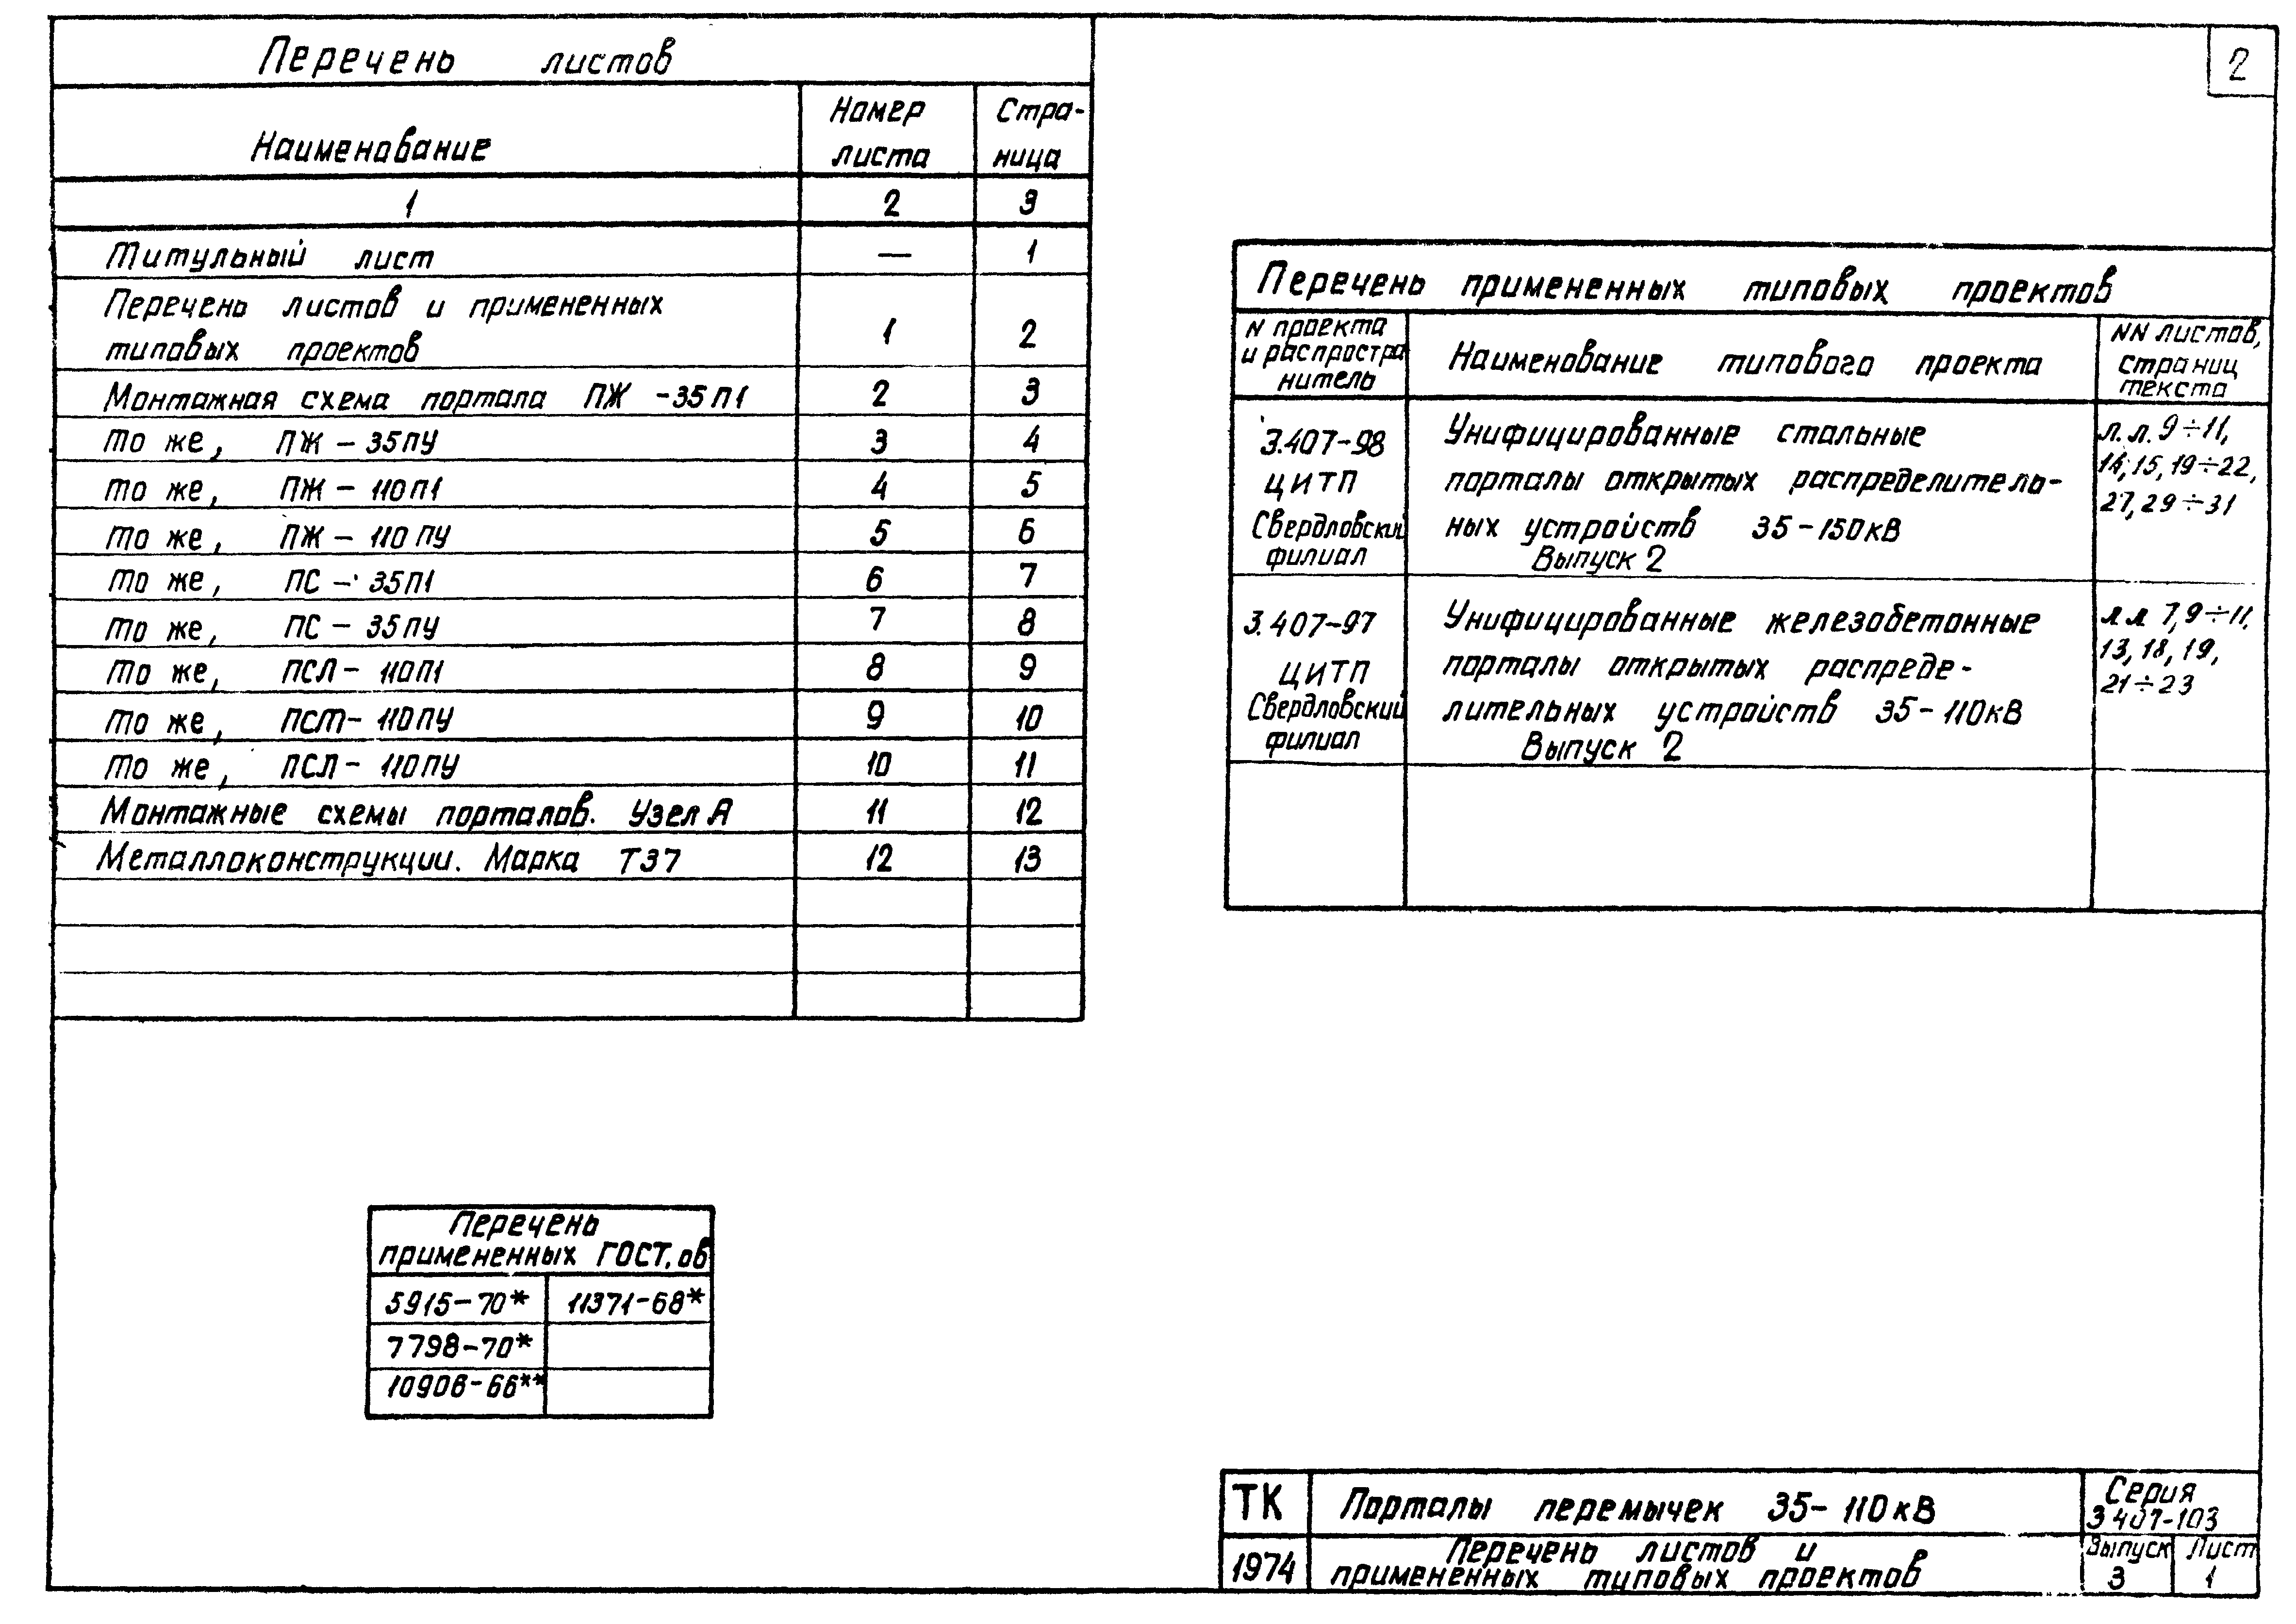 2
Перечень листов
Наименование Номер листа Стра-ница
1 2 3
Титульный лист — 1
Перечень листов и примененных
типовых проектов 1 2
Монтажная схема портала ПЖ-35П1 2 3
То же, ПЖ-35ПУ 3 4
То же, ПЖ-110П1 4 5
То же, ПЖ-110ПУ 5 6
То же, ПС-35П1 6 7
То же, ПС-35ПУ 7 8
То же, ПСЛ-110П1 8 9
То же, ПСТ-110ПУ 9 10
То же, ПСЛ-110ПУ 10 11
Монтажные схемы порталов. Узел А 11 12
Металлоконструкции. Марка Т37 12 13
Перечень примененных типовых проектов
N проекта
и распростра
нитель
Наименование типового проекта
NN листов,
страниц
текста
3.407-98
ЦИТП
Свердловский
филиал
Унифицированные стальные
порталы открытых распределитель-
ных устройств 35-150кВ
Выпуск 2
л.л. 9÷11,
14, 15, 19÷22,
27, 29÷31
3.407-97
ЦИТП
Свердловский
филиал
Унифицированные железобетонные
порталы открытых распреде-
лительных устройств 35-110кВ
Выпуск 2
л.л 7, 9÷11,
13, 18, 19,
21÷23
Перечень
примененных ГОСТ,ов
5915-70* 11371-68*
7798-70*
10906-66**
ТК Порталы перемычек 35-110кВ
Серия
3 407-103
1974
Перечень листов и
примененных типовых проектов
Выпуск Лист
3 1